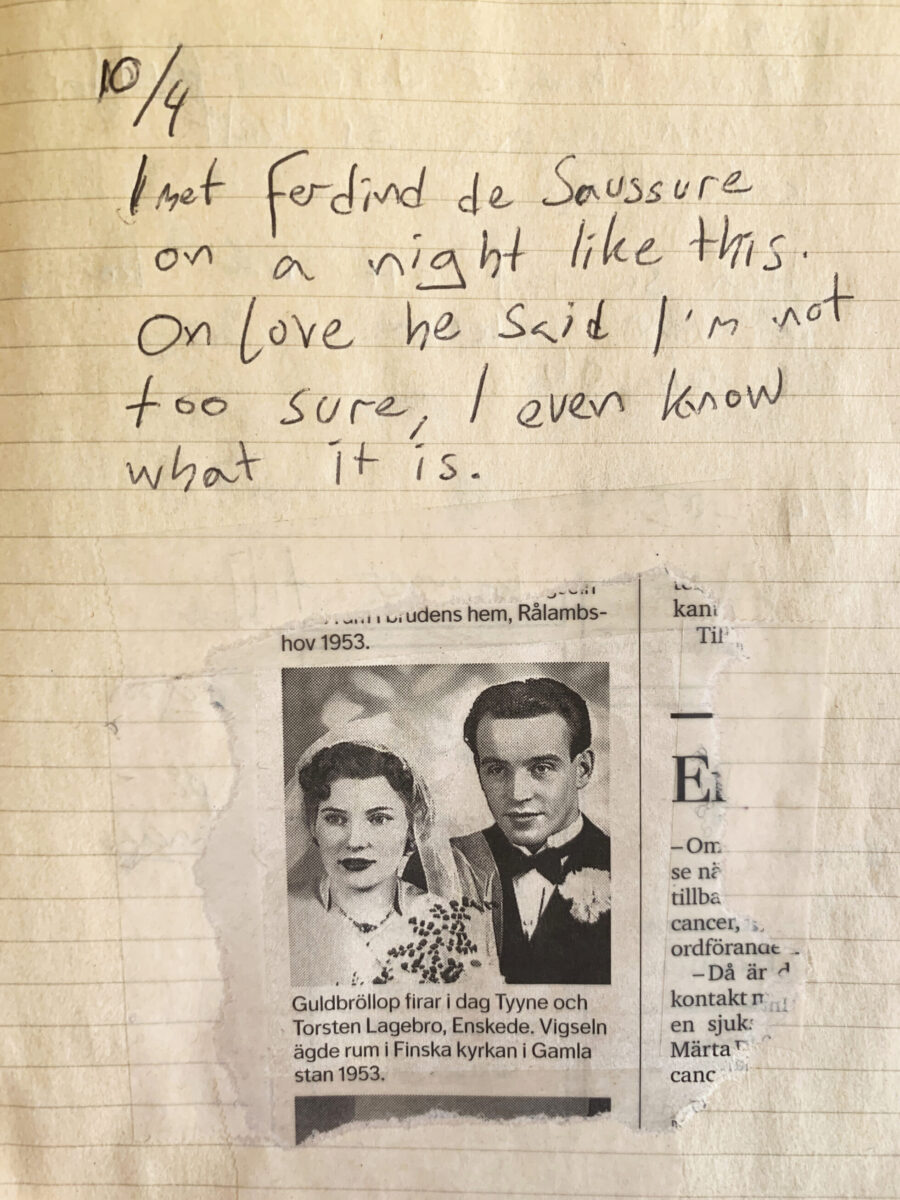 10/4
I met Ferdind de Saussure
on a night like this.
On love he said I'm not
too sure, I even know
what it is.
brudens hem, Rålambs-
hov 1953.
Guldbröllop firar i dag Tyyne och
Torsten Lagebro, Enskede. Vigseln
ägde rum i Finska kyrkan i Gamla
stan 1953.
–Om
se
tillba
cancer,
ordförande
–Då är
kontakt
en sjuk
Märta
canc